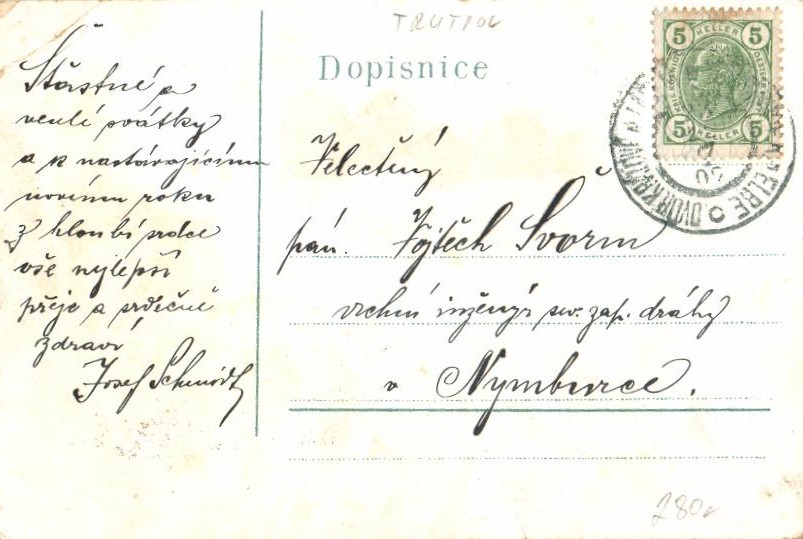 TRUTNOV
Dopisnice
Šťastné a
veselé svátky
a k nastávajícímu
novému roku
z hloubi srdce
vše nejlepší
přeje a srdečně
zdraví
Josef Schmidt
Velectěný
pán. Vojtěch Svorm
vrchní inženýr sev. záp. dráhy
v Nymburce.
5 HELLER 5
5 HELLER 5
ELBE DVŮR KR.
280,-